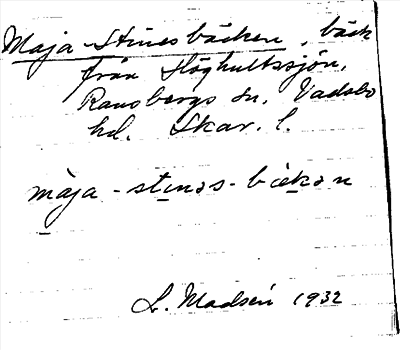 Maja-Stinesbäcken, bäck
från Höghultssjön,
Ransbergs sn, Vadsbo
hd. Skar. l.
màja-stınəs-bɛ̀kən
L. Madsén 1932